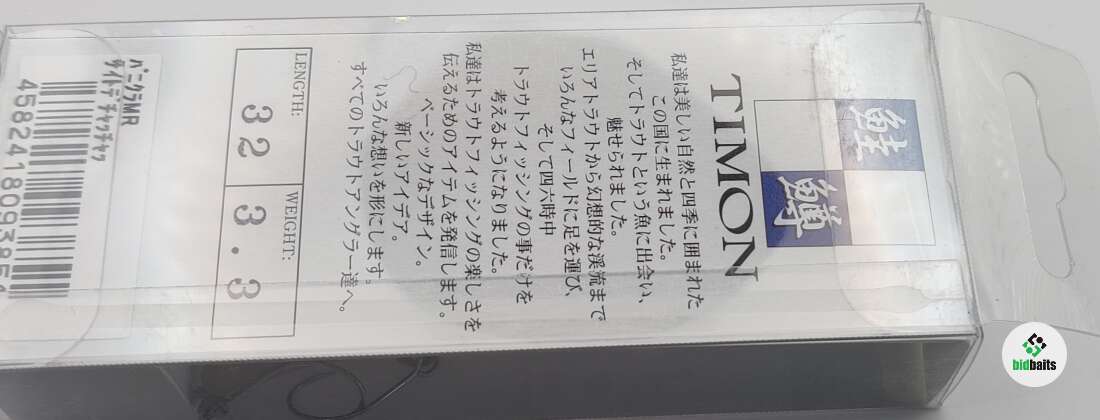 鮭
鱒
TIMON
私達は美しい自然と四季に囲まれた
この国に生まれました。
そしてトラウトという魚に出会い、
魅せられました。
エリアトラウトから幻想的な渓流まで
いろんなフィールドに足を運び、
そして四六時中
トラウトフィッシングの事だけを
考えるようになりました。
私達はトラウトフィッシングの楽しさを
伝えるためのアイテムを発信します。
ベーシックなデザイン。
新しいアイデア。
いろんな想いを形にします。
すべてのトラウトアングラー達へ。
LENGTH:
32
WEIGHT:
3.3
ﾊﾟﾆｸﾗMR
ｻｲﾄﾃﾞﾁｬｯﾁｬｯ
bidbaits